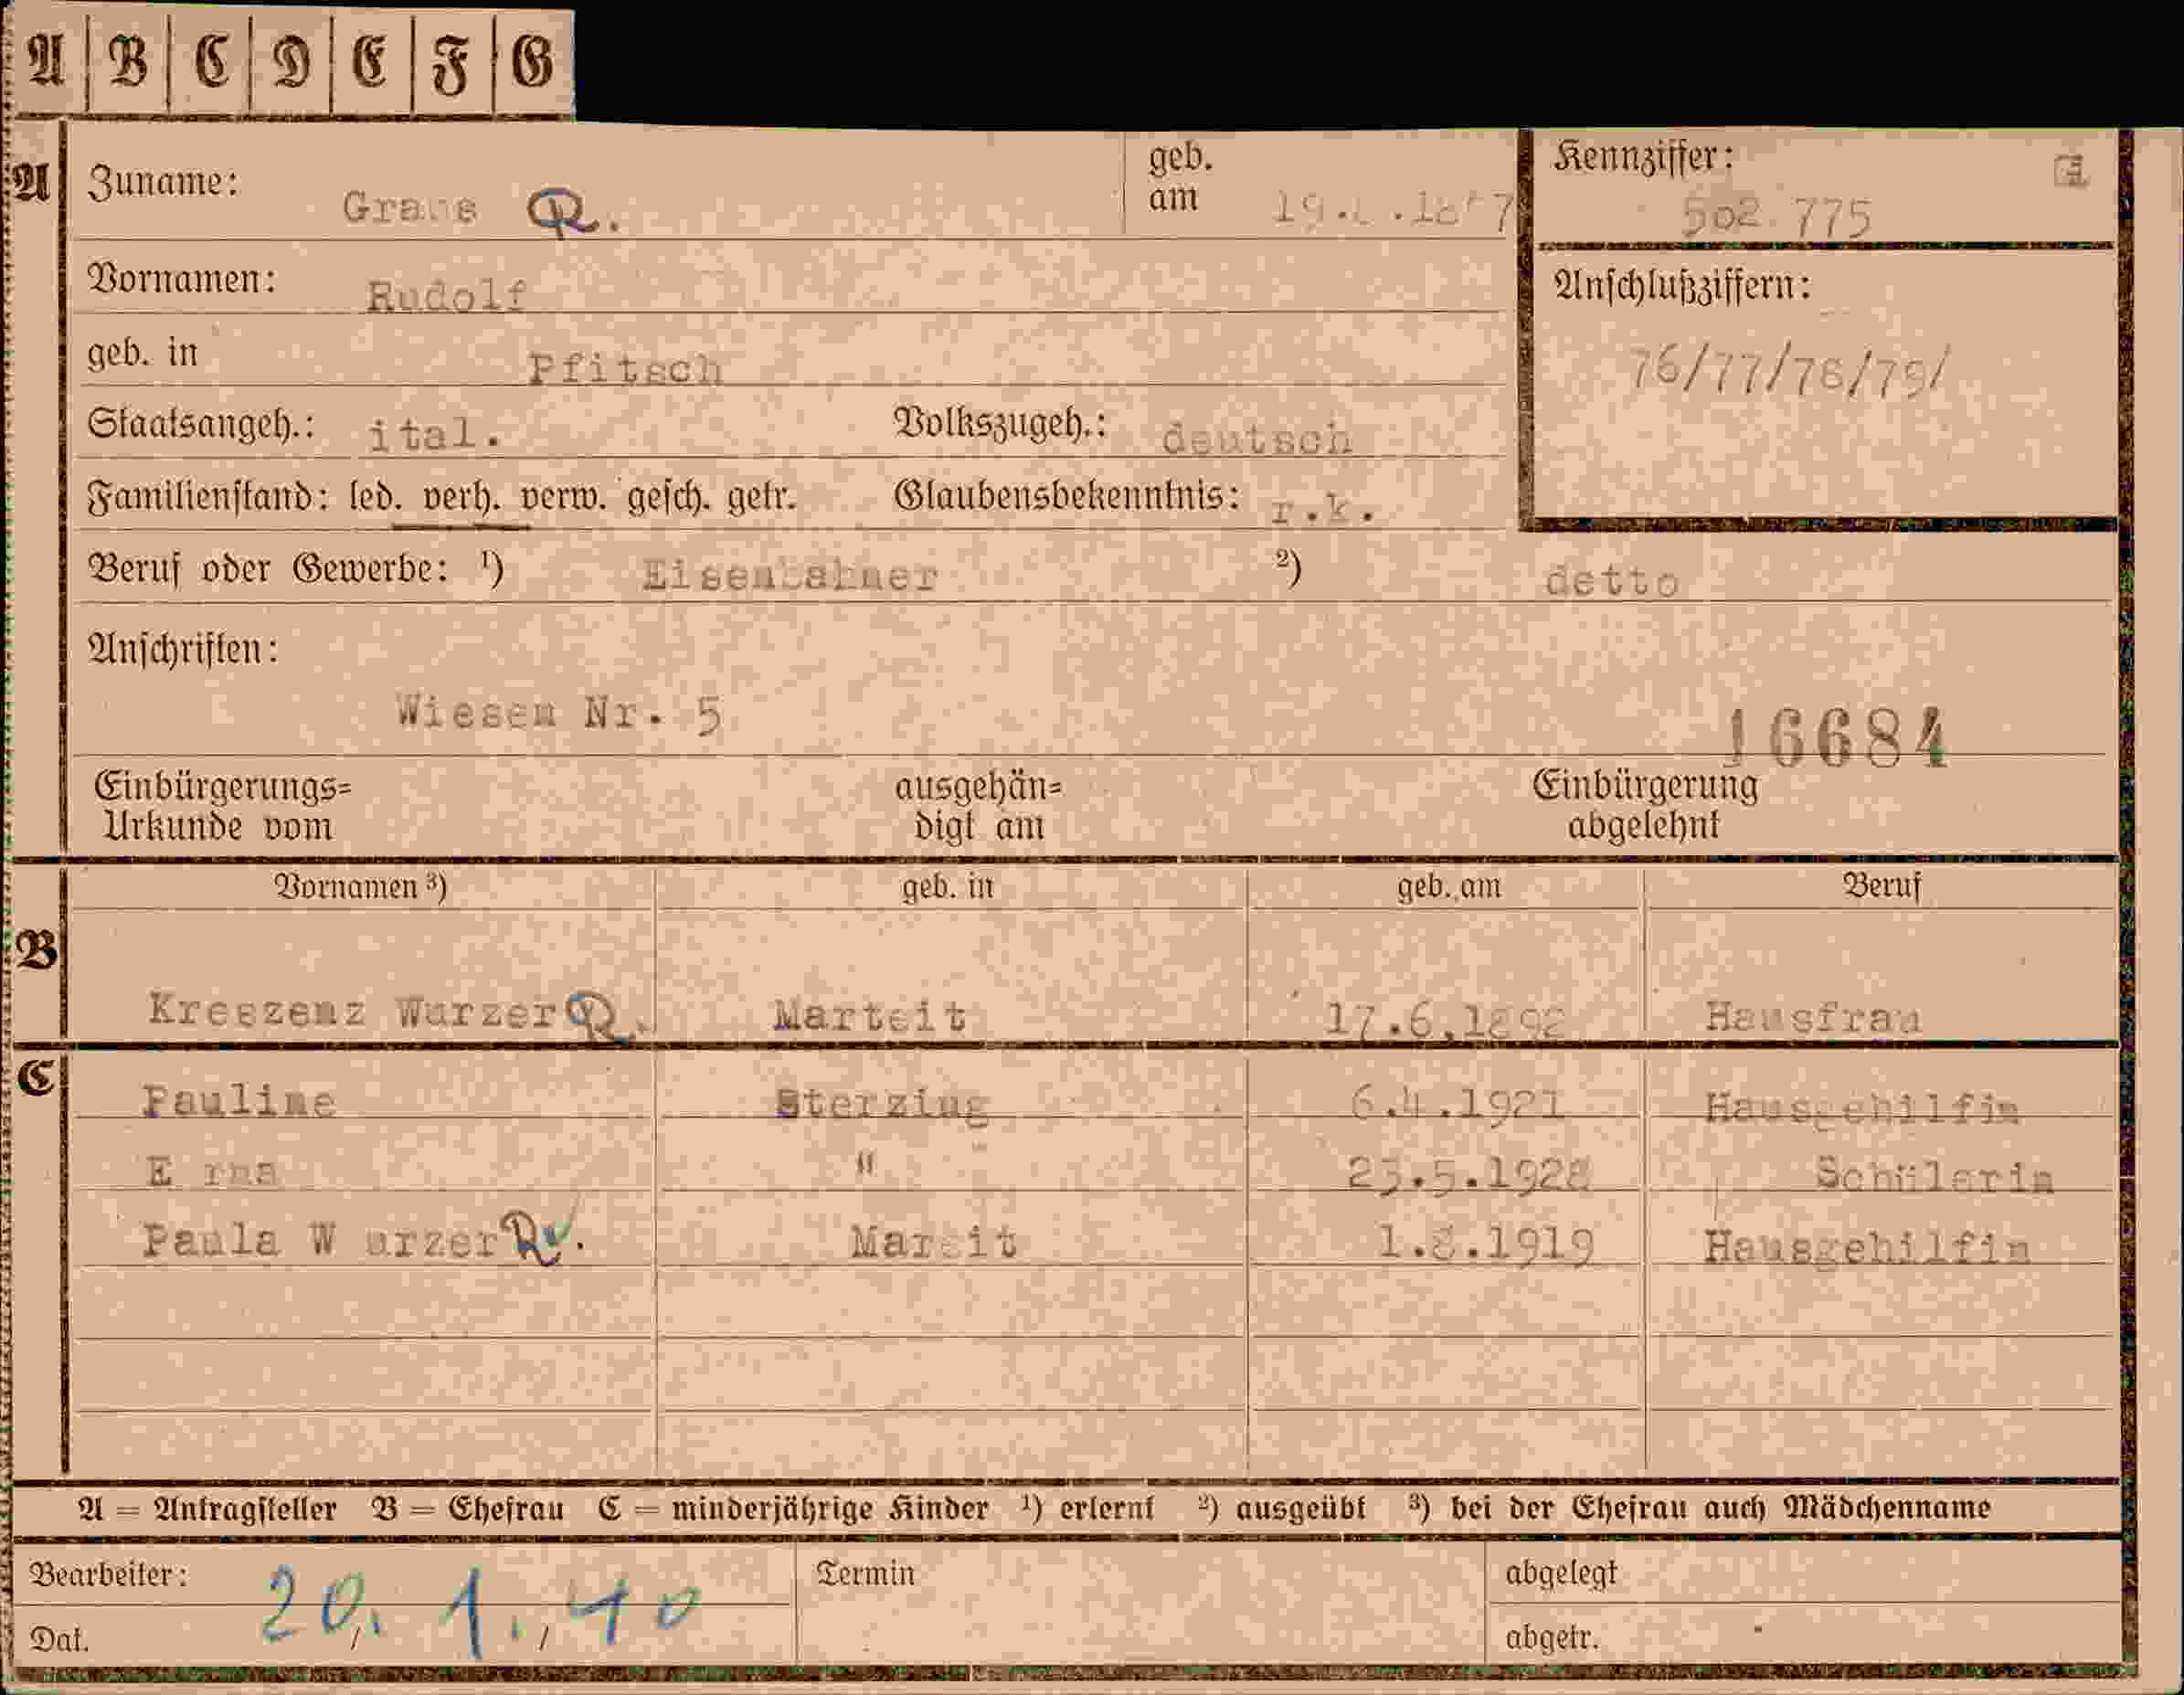 A B C D E F G
A
Zuname: Graus R.
geb. am
Kennziffer: 502 775
Vornamen: Rudolf
Anschlußziffern:
76/77/78/79/
geb. in Pfitsch
Staatsangeh.: ital. Volkszugeh.: deutsch
Familienstand: led. verh. verw. gesch. getr. Glaubensbekenntnis: r.k.
Beruf oder Gewerbe: 1) Eisenbahner 2) detto
Anschriften:
Wiesen Nr. 5
16684
Einbürgerungs= ausgehän= Einbürgerung
Urkunde vom digt am abgelehnt
Vornamen 3) geb. in geb. am Beruf
B
Kreszenz Wurzer R. Marteit 17.6.1892 Hausfrau
C
Pauline Sterzing 6.4.1921 Hausgehilfin
E rna " 23.5.1928 Schülerin
Paula W urzer R. Mareit 1.8.1919 Hausgehilfin
A = Antragsteller B = Ehefrau C = minderjährige Kinder 1) erlernt 2) ausgeübt 3) bei der Ehefrau auch Mädchenname
Bearbeiter: Termin abgelegt
20. 1. 40
Dat. abgetr.